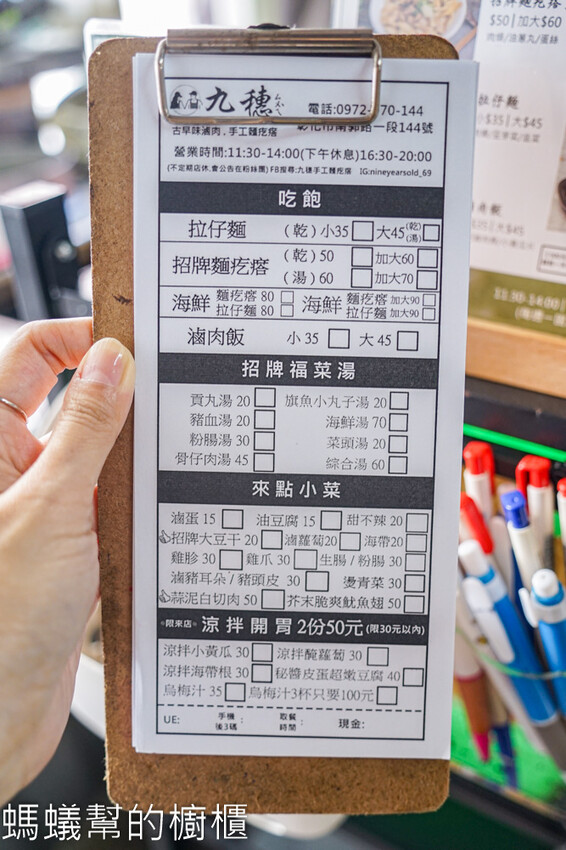 九穗ㄙㄨㄟˋ
電話:0972-
70-144
古早味滷肉,手工麵疙瘩
彰化市南郭路一段144號
營業時間:11:30-14:00(下午休息)16:30-20:00
(不定期店休,會公告在粉絲團) FB搜尋:九穗手工麵疙瘩 IG:nineyearsold_69
吃飽
拉仔麵 (乾)小35 大45(乾)(湯)
招牌麵疙瘩 (乾)50 加大60
(湯)60 加大70
海鮮 麵疙瘩 80 海鮮 麵疙瘩 加大90
拉仔麵 80 拉仔麵 加大90
滷肉飯 小35 大45
招牌福菜湯
貢丸湯 20 旗魚小丸子湯 20
豬血湯 20 海鮮湯 70
粉腸湯 30 菜頭湯 20
骨仔肉湯 45 綜合湯 60
來點小菜
滷蛋 15 油豆腐 15 甜不辣 20
招牌大豆干 20 滷蘿蔔20 海帶20
雞胗 30 雞爪 30 生腸/粉腸 30
滷豬耳朵/豬頭皮 30 燙青菜 30
蒜泥白切肉 50 芥末脆爽魷魚翅 50
*限來店* 涼拌開胃 2份50元(限30元以內)
涼拌小黃瓜 30 涼拌醃蘿蔔 30
涼拌海帶根 30 秘醬皮蛋超嫩豆腐 40
烏梅汁 35 烏梅汁3杯只要100元
UE: 手機後3碼: 取餐時間: 現金:
$50|加大60
肉燥/油蔥丸/蛋絲
拉仔麵
小$35|大$45
11:30-14:00
螞蟻幫的櫥櫃